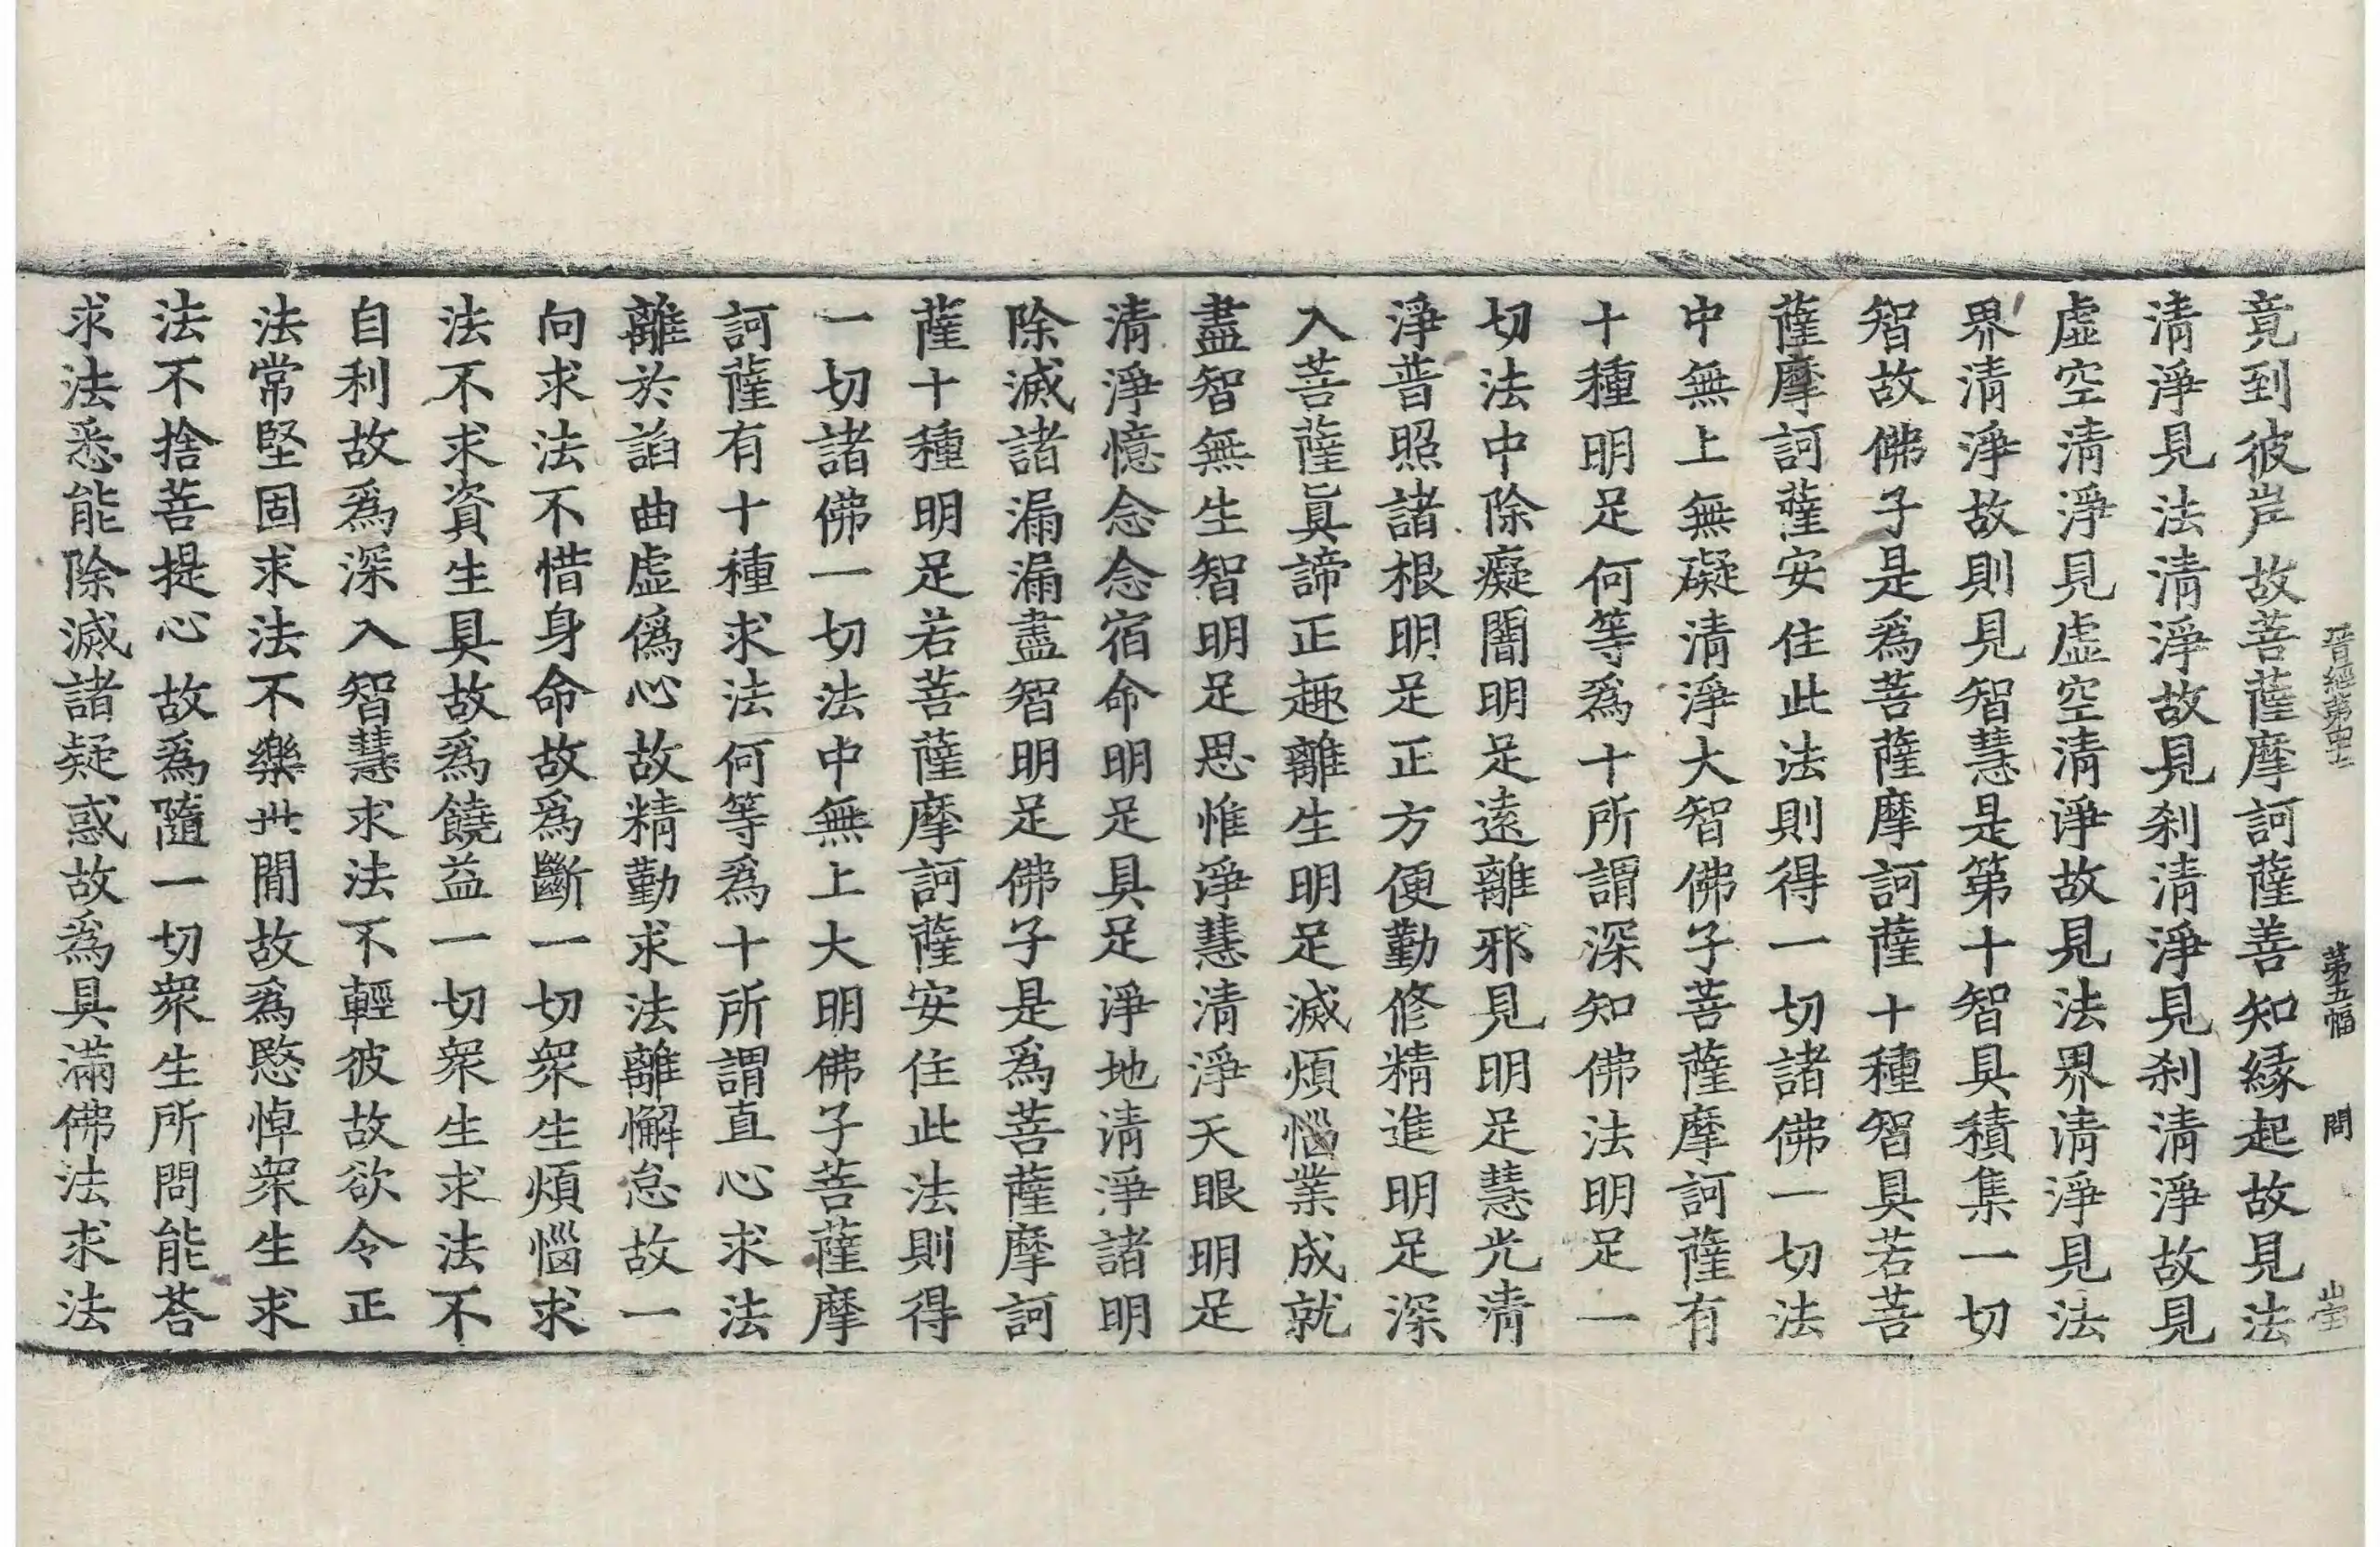 晋經第四十 第五幅 問
竟到彼岸故菩薩摩訶薩善知緣起故見法
清淨見法清淨故見刹清淨見刹清淨故見
虛空清淨見虛空清淨故見法界清淨見法
界清淨故則見智慧是第十智具積集一切
智故佛子是爲菩薩摩訶薩十種智具若菩
薩摩訶薩安住此法則得一切諸佛一切法
中無上無礙清淨大智佛子菩薩摩訶薩有
十種明足何等爲十所謂深知佛法明足一
切法中除癡闇明足遠離邪見明足慧光清
淨普照諸根明足正方便勤修精進明足深
入菩薩眞諦正趣離生明足滅煩惱業成就
盡智無生智明足思惟淨慧清淨天眼明足
清淨憶念念宿命明足具足淨地清淨諸明
除滅諸漏漏盡智明足佛子是爲菩薩摩訶
薩十種明足若菩薩摩訶薩安住此法則得
一切諸佛一切法中無上大明佛子菩薩摩
訶薩有十種求法何等爲十所謂直心求法
離於諂曲虛僞心故精勤求法離懈怠故一
向求法不惜身命故爲斷一切衆生煩惱求
法不求資生具故爲饒益一切衆生求法不
自利故爲深入智慧求法不輕彼故欲令正
法常堅固求法不樂世閒故爲愍悼衆生求
法不捨菩提心故爲隨一切衆生所問能荅
求法悉能除滅諸疑惑故爲具滿佛法求法